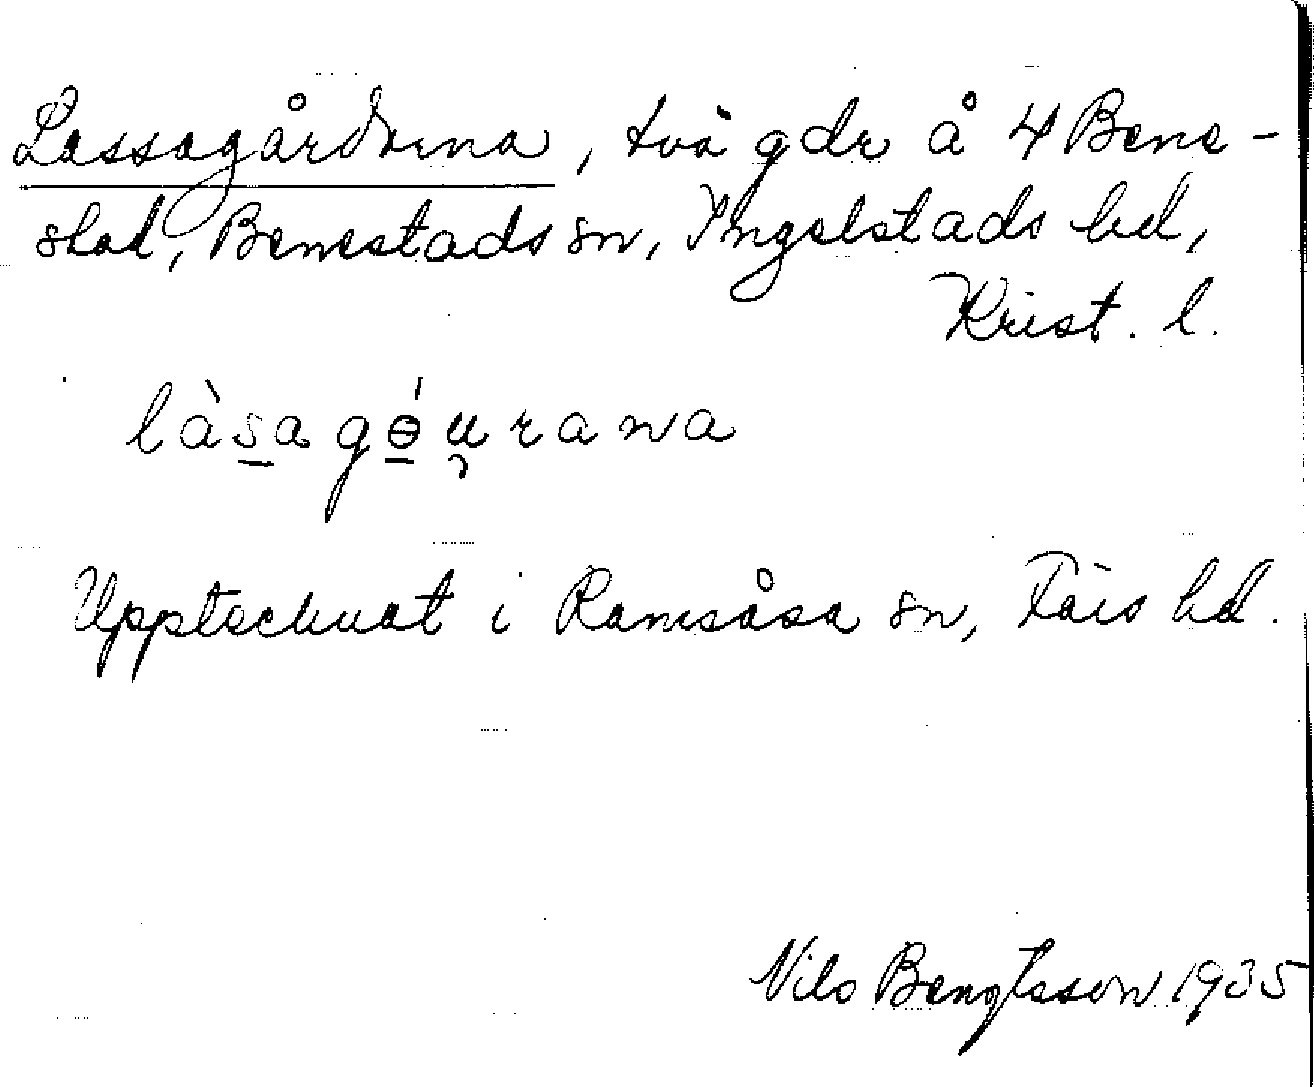 Lassagårdarna, två gdr å 4 Bene-
stad, Benestads sn, Ingelstads hd,
Krist. l.
làsagɵ́urana
Upptecknat i Ramsåsa sn, Färs hd.
Nils Bengtsson 1935